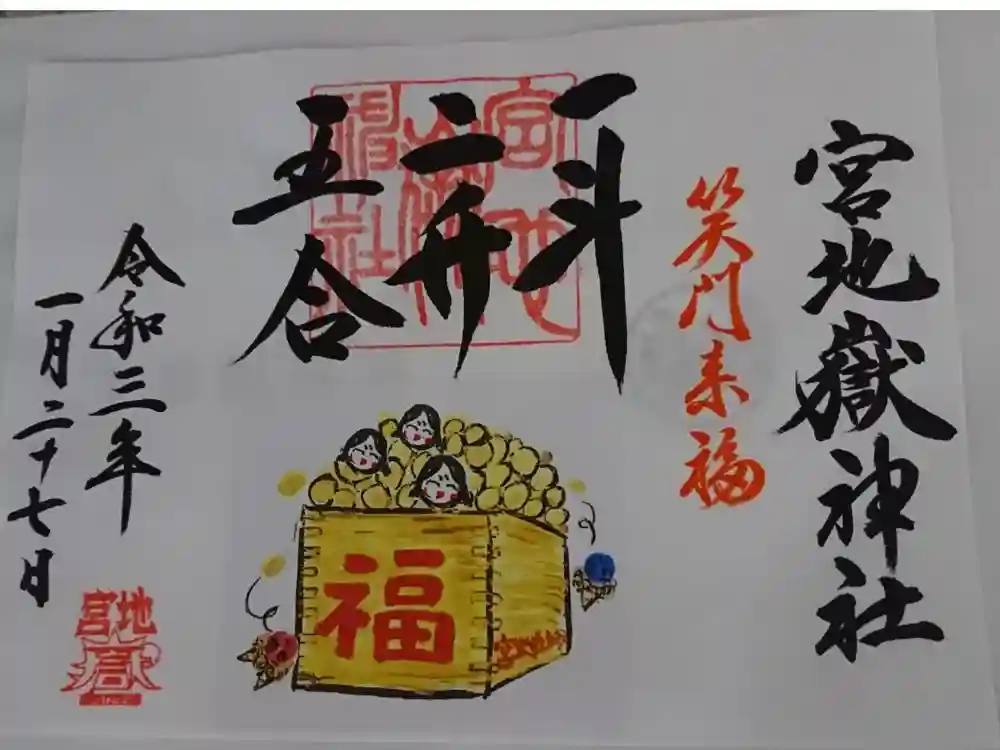 宮地嶽神社
笑門来福
一斗
二升
五合
宮地
嶽神
社
福
令和三年
一月二十七日
宮地
嶽